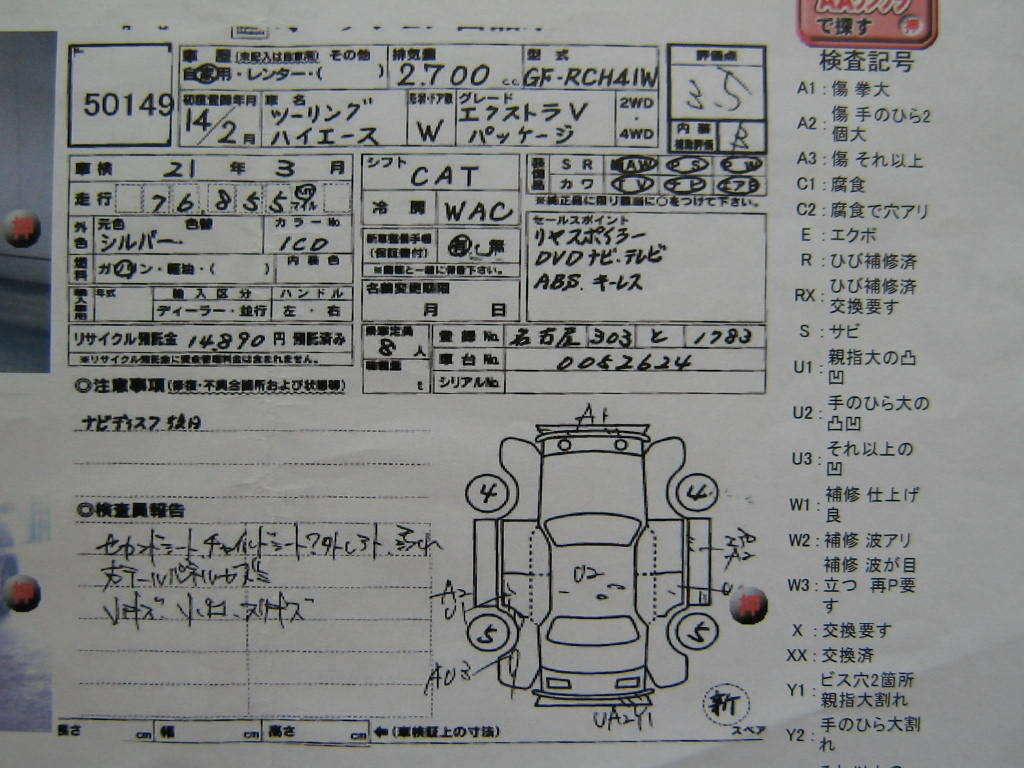 AAクラブ
で探す 押
検査記号
A1 : 傷 拳大
A2 : 傷 手のひら2個大
A3 : 傷 それ以上
C1 : 腐食
C2 : 腐食で穴アリ
E : エクボ
R : ひび補修済
RX : ひび補修済
交換要す
S : サビ
U1 : 親指大の凸
凹
U2 : 手のひら大の
凸凹
U3 : それ以上の
凹
W1 : 補修 仕上げ
良
W2 : 補修 波アリ
W3 : 補修 波が目
立つ 再P要
す
X : 交換要す
XX : 交換済
Y1 : ビス穴2箇所
親指大割れ
Y2 : 手のひら大割
れ
50149
車歴 (未記入は自家用) その他
自家用・レンター・( )
排気量
2,700 cc
型式
GF-RCH41W
評価点
3.5
内装
補助評価 B
初度登録年月
14/2月
車名
ツーリング
ハイエース
形状・ドア数
W
グレード
エクストラV
パッケージ
2WD
・
4WD
車検 21 年 3 月
走行 76855 マイル
外色
元色 色替
シルバー
カラーNo
1C0
燃料 ガソリン・軽油・( )
内装色
輸入車用 年式 輸入区分 ハンドル
ディーラー・並行 左・右
リサイクル預託金 14,890 円 預託済み
※リサイクル預託金に資金管理料金は含まれません。
シフト
CAT
冷房 WAC
新車整備手帳
(保証書付) 有・無
※書類と一緒に保管下さい。
名義変更期限
月 日
乗車定員
8 人
積載量
t
装備品
SR AW PS PW
カワ TV ナビ エアB
※純正品に限り該当に○をつけて下さい。
セールスポイント
リヤスポイラー
DVDナビ・テレビ
ABS. キーレス
登録No. 名古屋 303 と 1783
車台No. 0052624
シリアルNo.
◎注意事項 (修復・不具合箇所および状態等)
ナビディスク後日
◎検査員報告
セカンドシート チャイルドシート
A1
4
4
A2
U1
U2
A2
U
5
5
AU3
UA2Y1
新
スペア
長さ cm 幅 cm 高さ cm ← (車検証上の寸法)
押
押
押